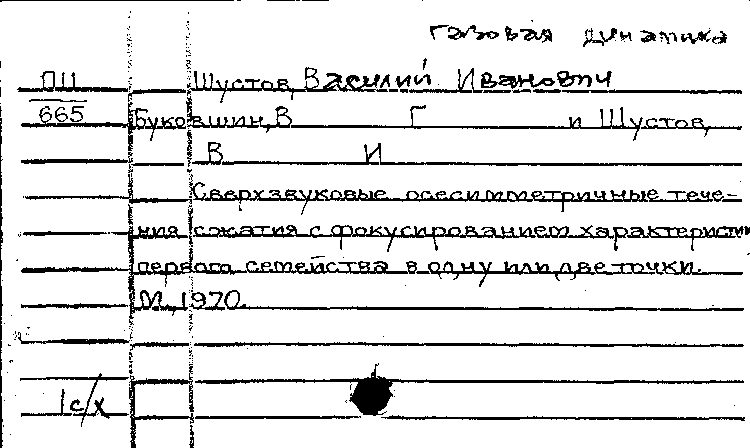 газовая динамика
ПЦ Шустов, Василий Иванович
665 Буковшин, В Г и Шустов,
В И
Сверхзвуковые осесимметричные тече-
ния сжатия с фокусированием характеристик
первого семейства в одну или две точки.
М., 1970.
1с/х